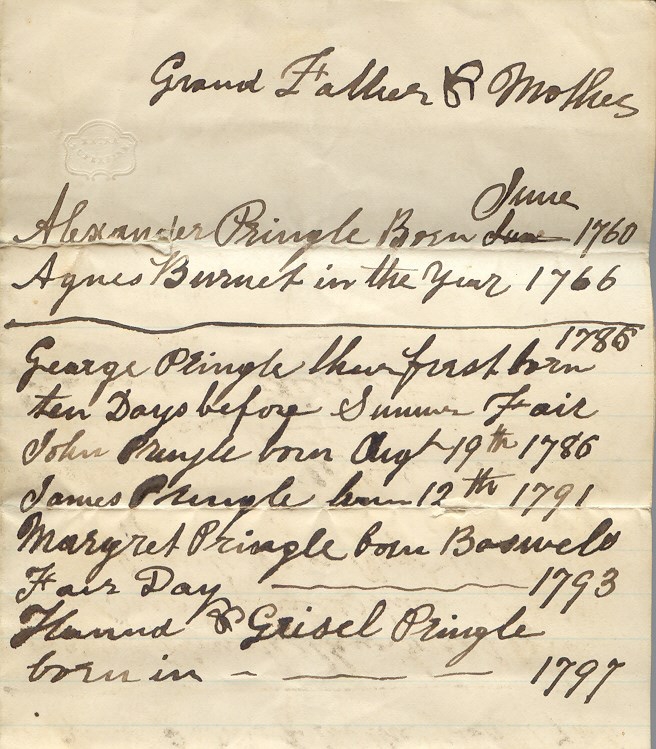 Grand Father & Mother
June
Alexander Pringle Born June 1760
Agnes Burnet in the Year 1766
1785
George Pringle their first born
ten Days before Summer Fair
John Pringle born Augt 19th 1786
James Pringle born 12th 1791
Margret Pringle born Boswels
Fair Day 1793
Hannd & Grisel Pringle
born in - — — - 1797